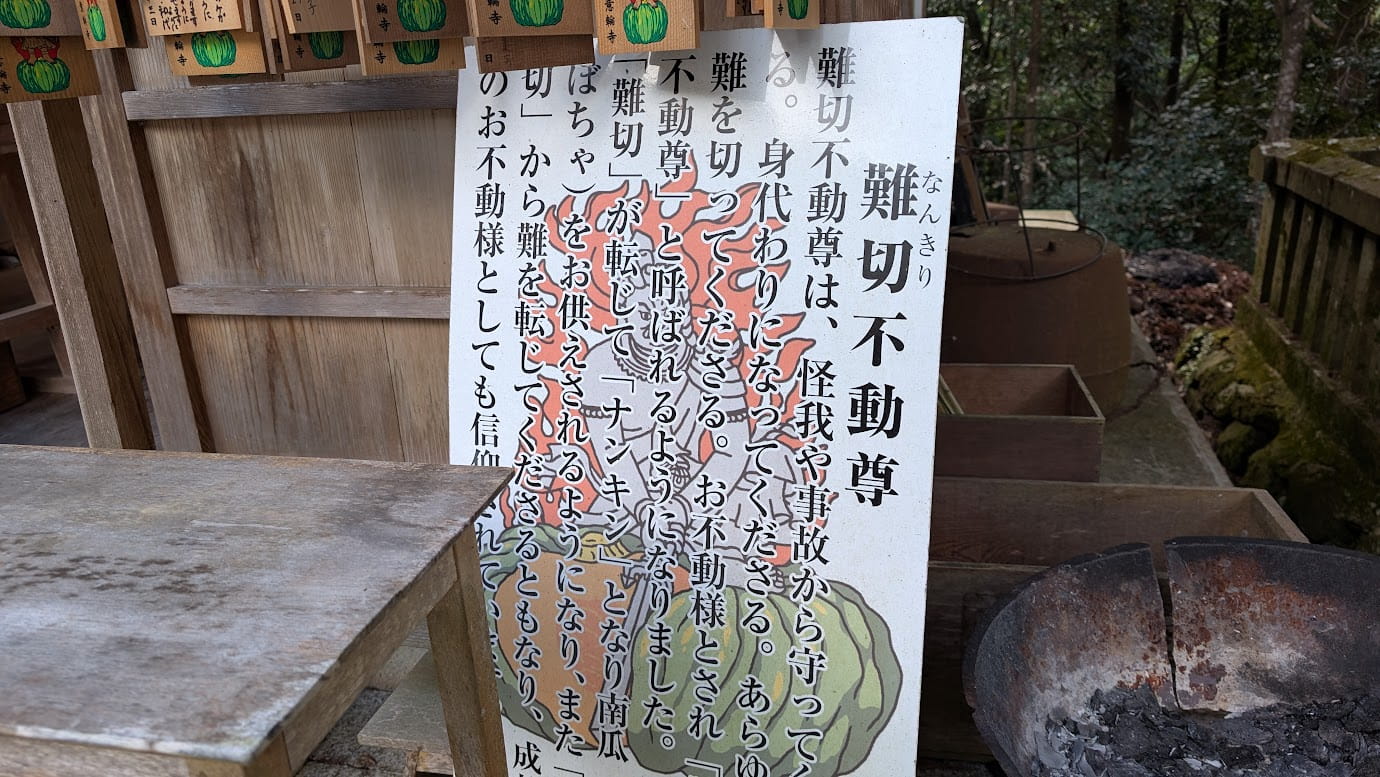 難切不動尊
なんきり
難切不動尊は、怪我や事故から守ってく
る。身代わりになってくださる。あらゆ
難を切ってくださる。お不動様とされ「
不動尊」と呼ばれるようになりました。
「難切」が転じて「ナンキン」となり南瓜
ぼちゃ）をお供えされるようになり、また「
切」から難を転じてくださるともなり、成
のお不動様としても信仰されてい
意輪寺
輪寺